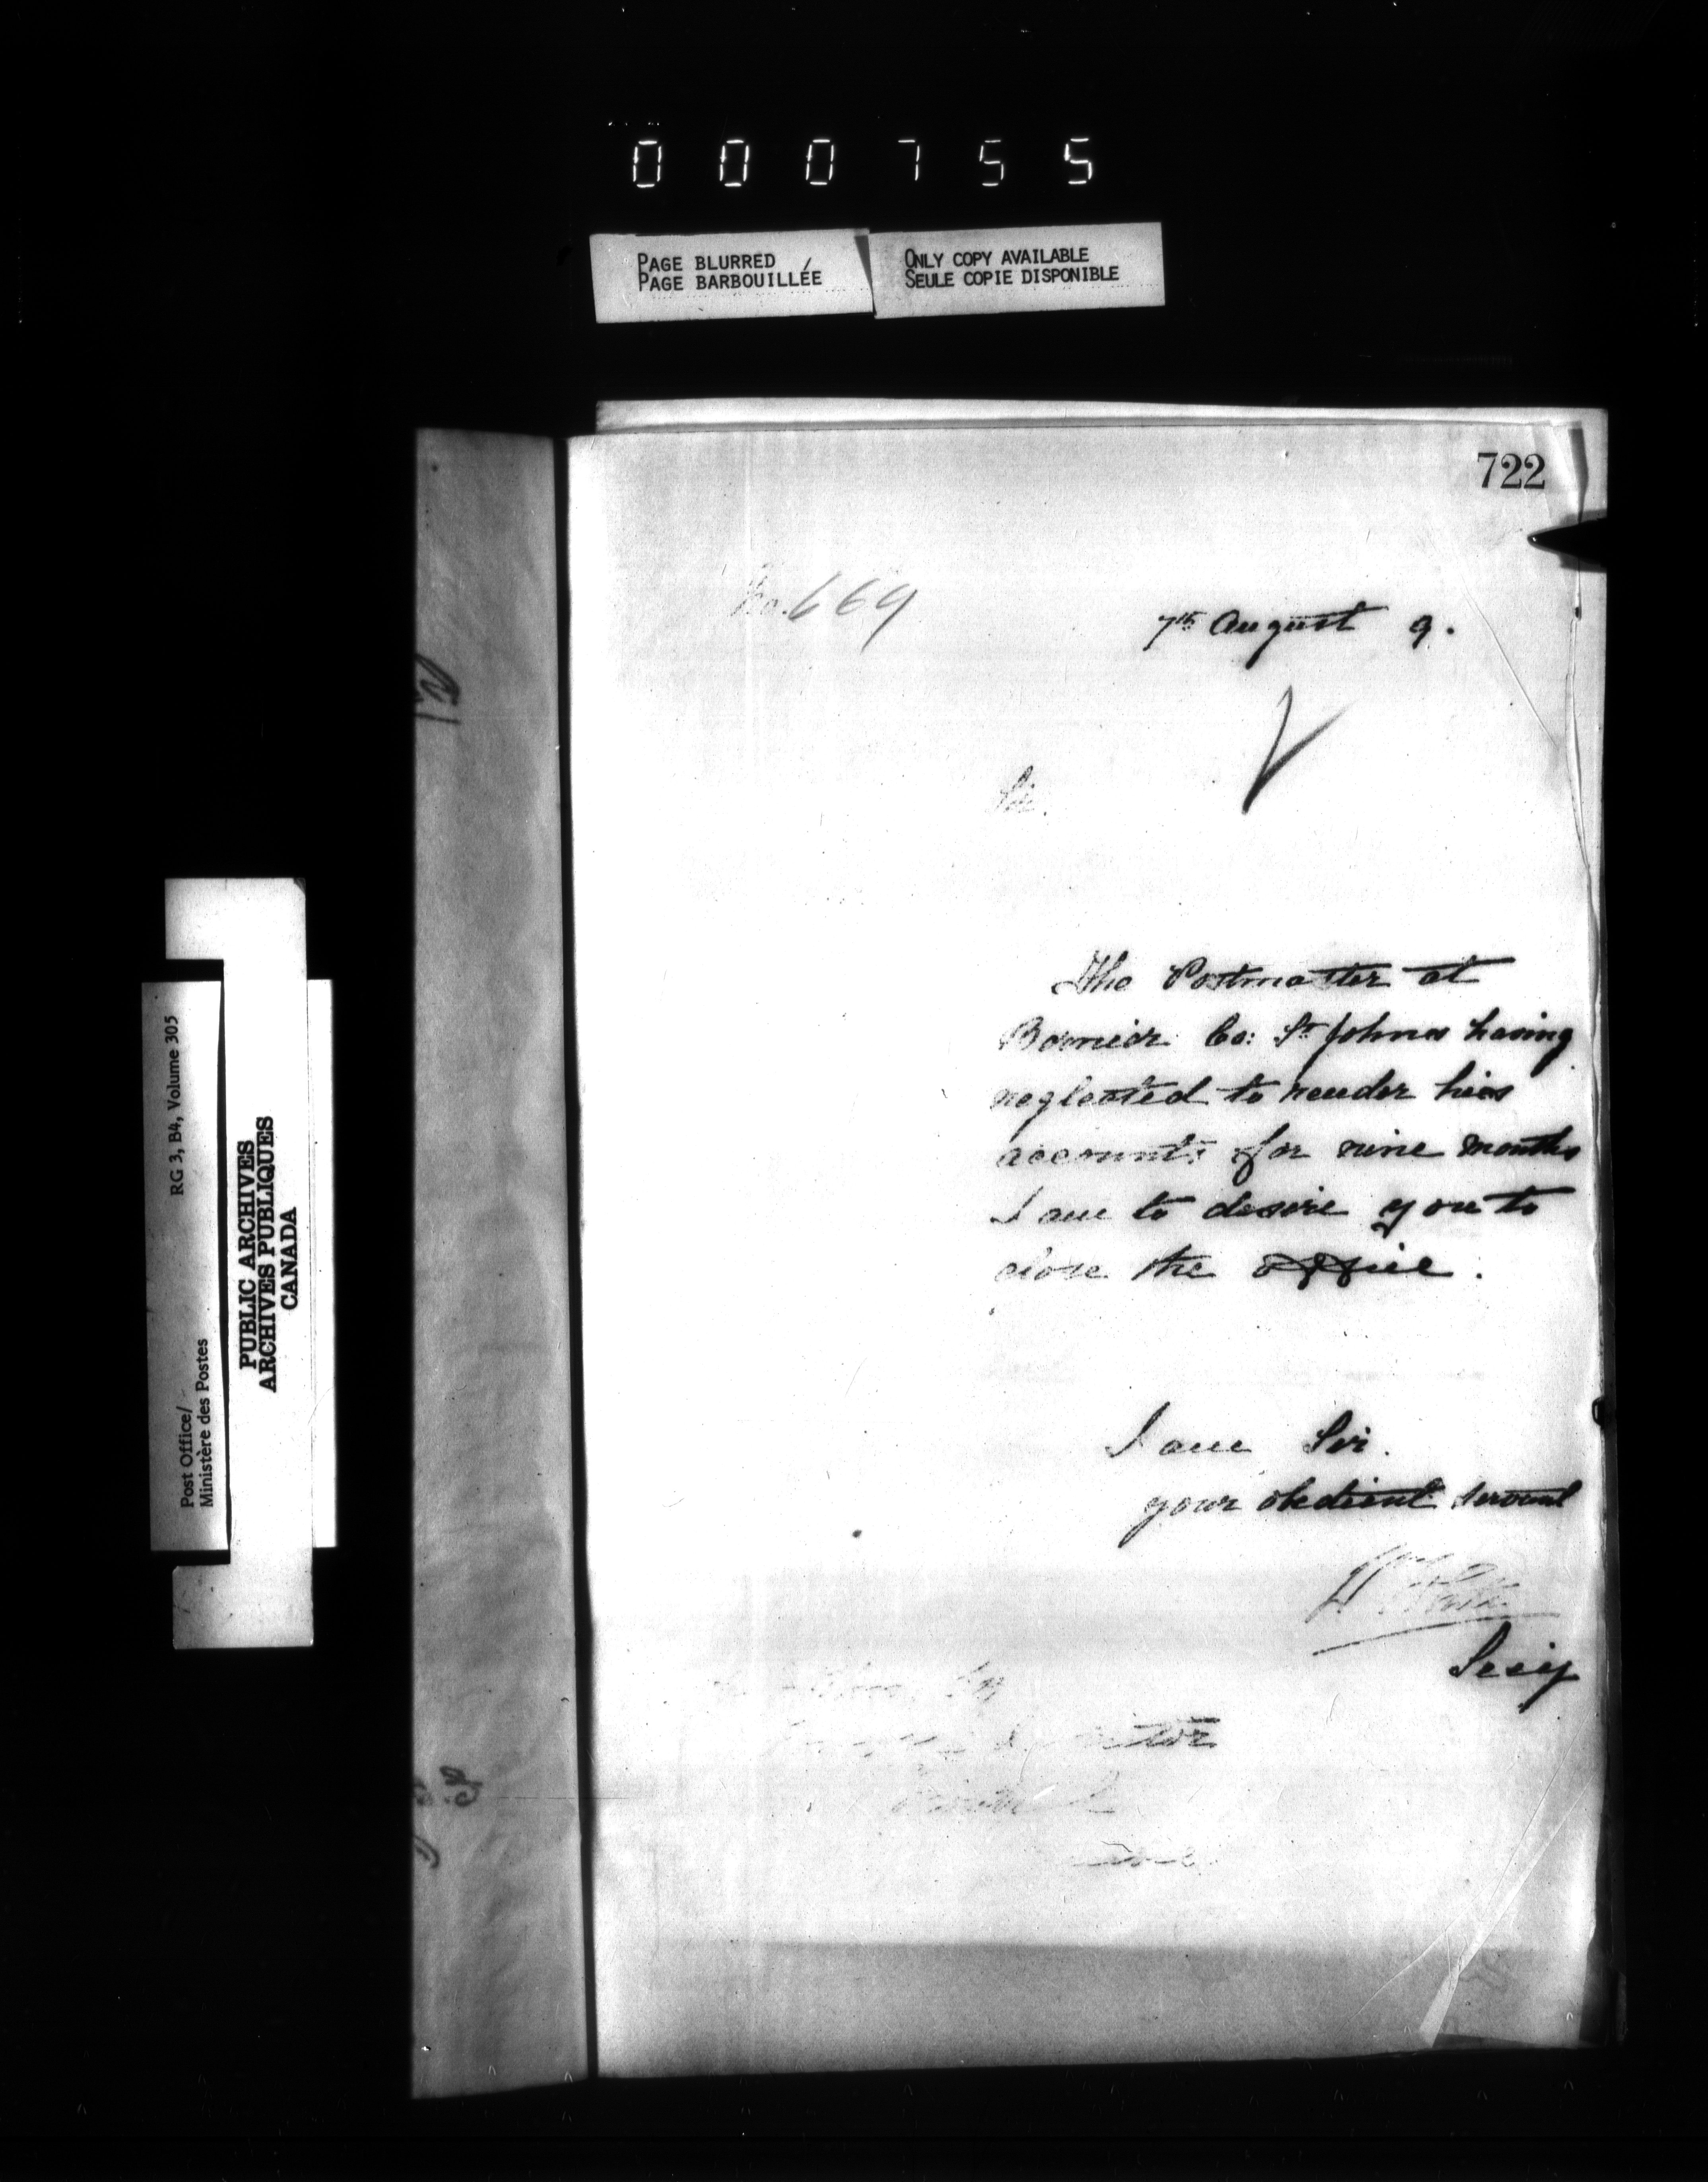 000755
PAGE BLURRED
PAGE BARBOUILLÉE
ONLY COPY AVAILABLE
SEULE COPIE DISPONIBLE
722
No. 669
7th August 9.
Sir.
The Postmaster at
Bernier Co: St Johns having
neglected to render his
accounts for nine months
I am to desire you to
close the office.
I am Sir.
your obedient servant
Secy
Post Office/
Ministère des Postes
RG 3, B4, Volume 305
PUBLIC ARCHIVES
ARCHIVES PUBLIQUES
CANADA